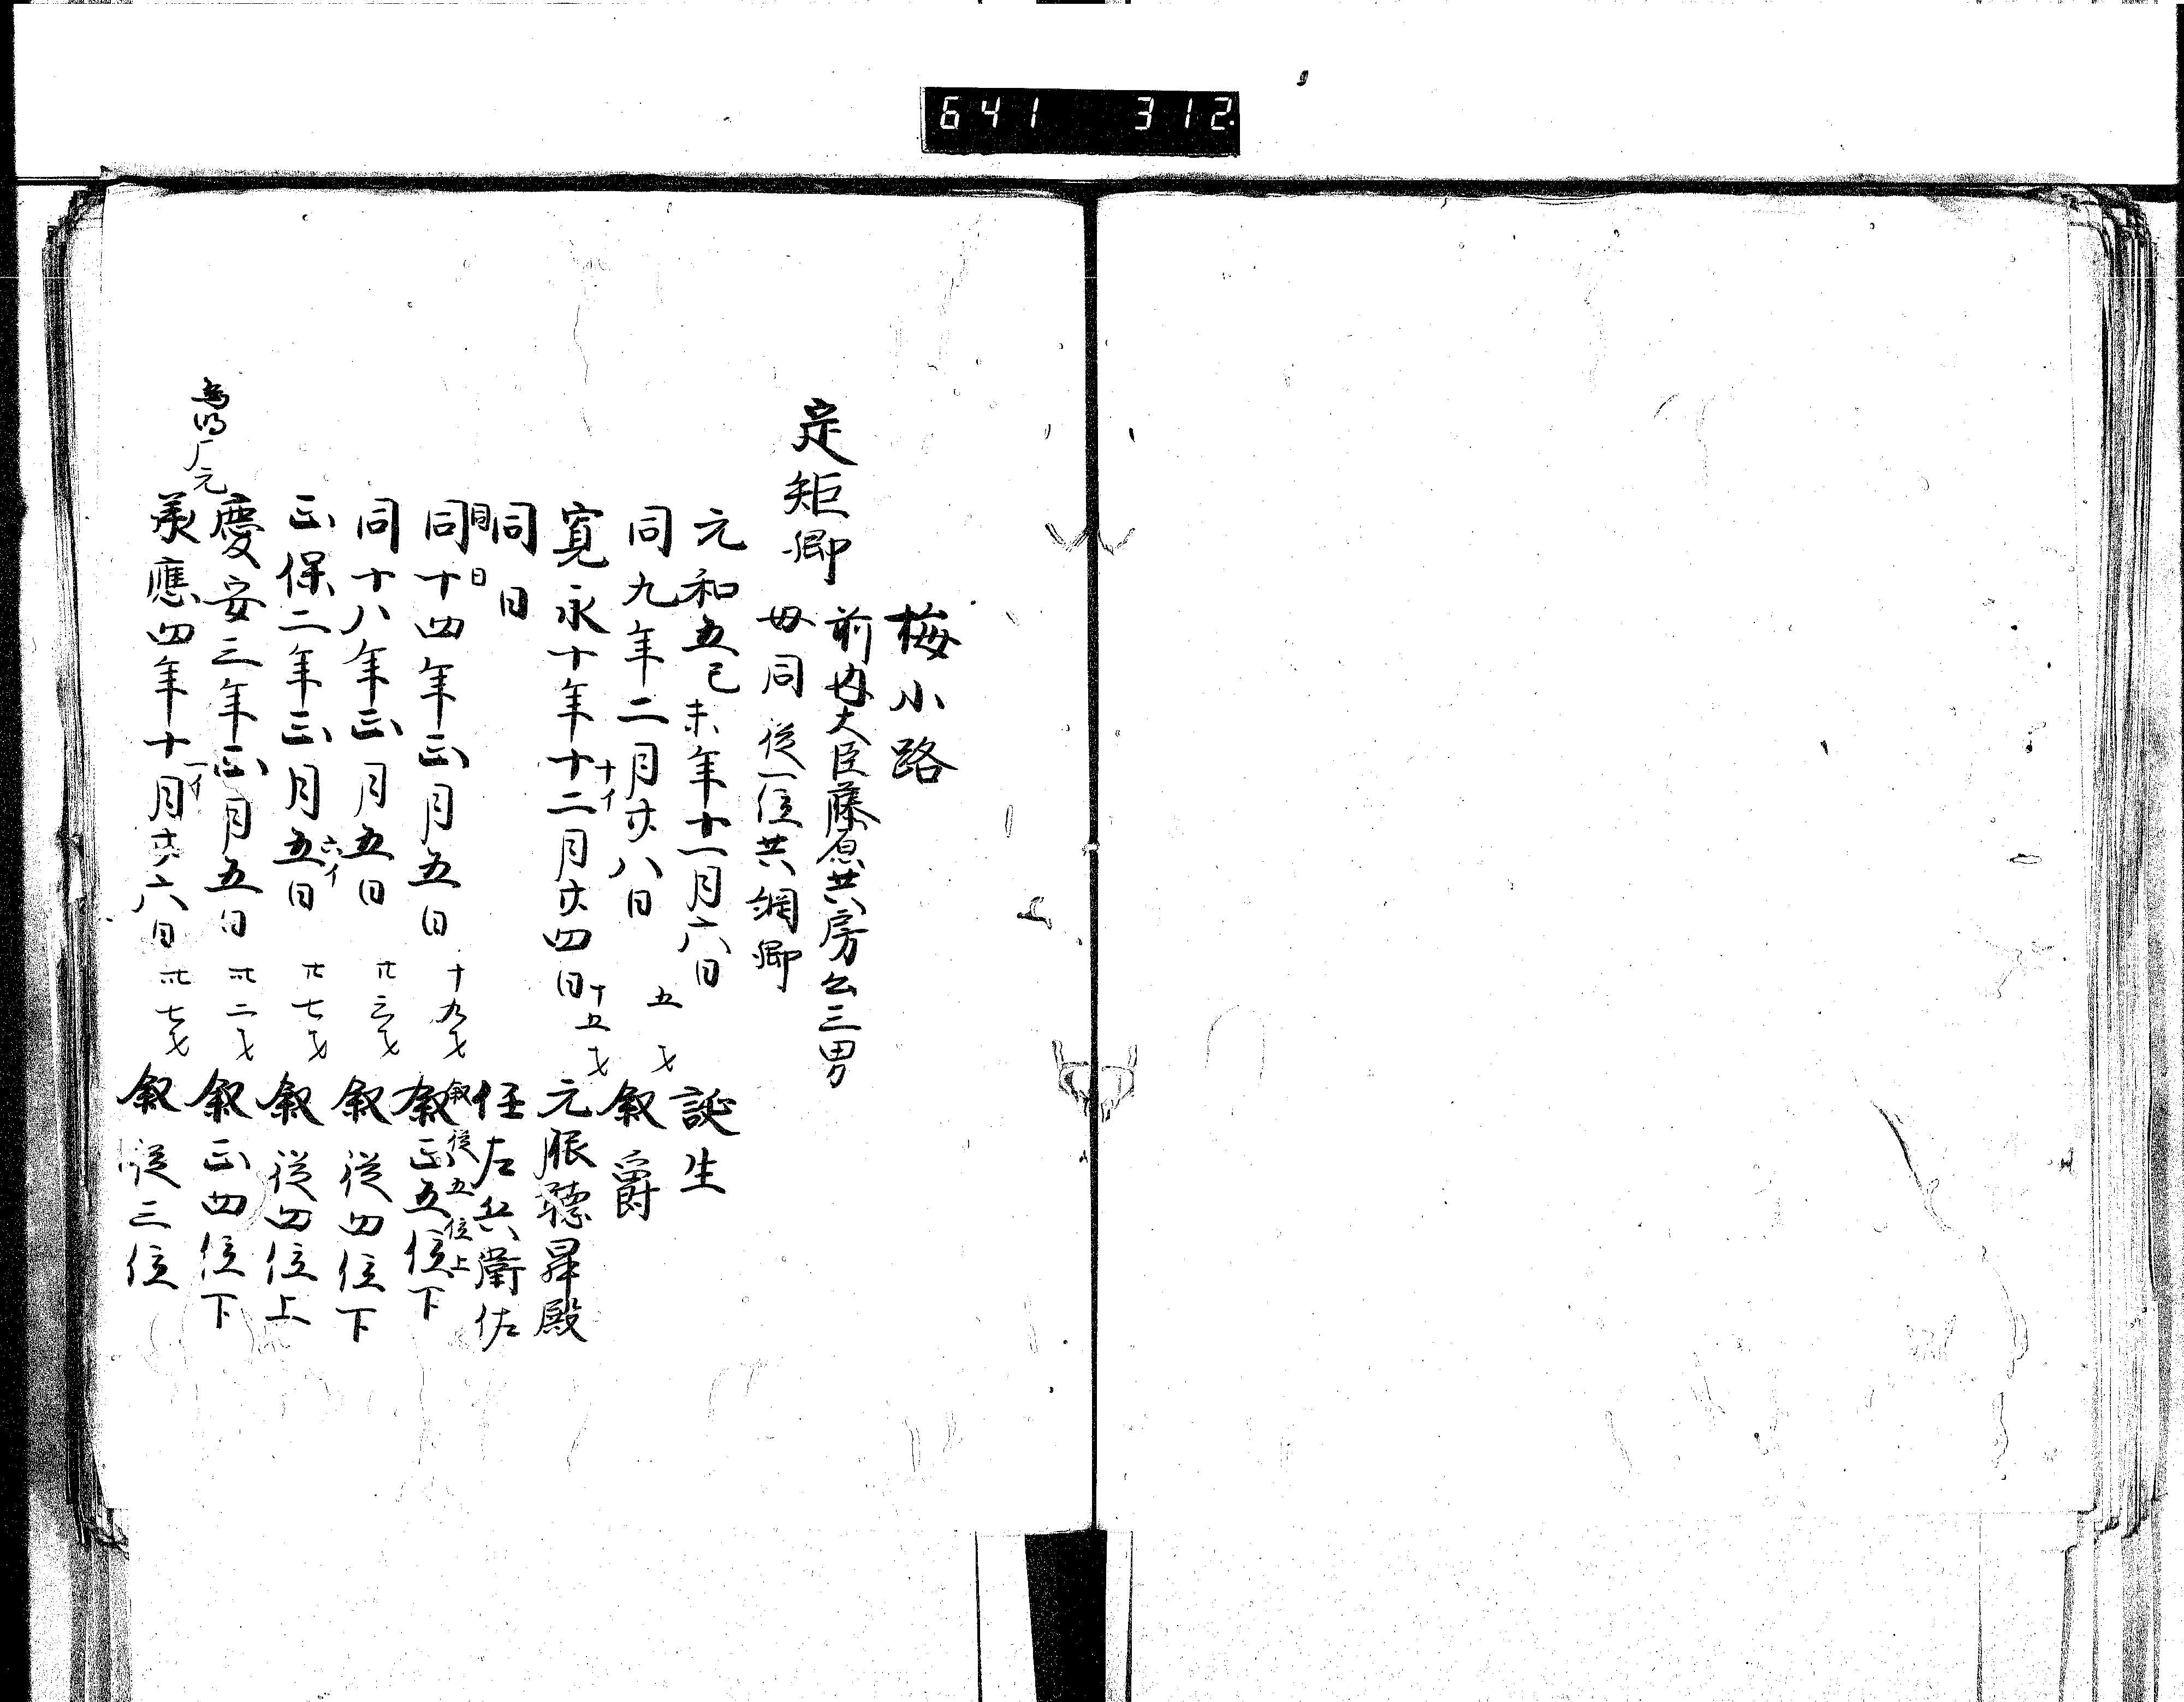 641 312
梅小路
定矩卿 前内大臣藤原共房公三男
母同 従一位共綱卿
元和五己未年十一月六日 誕生
同九年二月廿八日 五才 叙爵
寛永十年十二月廿四日 十五才 元服聴昇殿
十イ
同日 任左兵衛佐
同日 叙従五位上
同十四年正月五日 十九才 叙正五位下
同十八年正月五日 廿三才 叙従四位下
正保二年正月五日 廿七才 叙従四位上
六イ
慶安三年正月五日 卅二才 叙正四位下
承應四年十月廿六日 卅七才 叙従三位
一イ